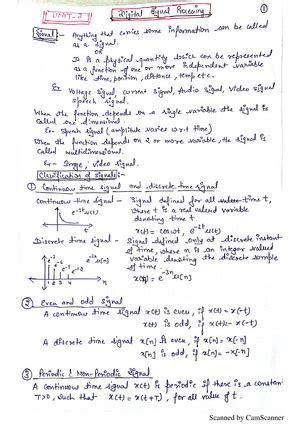 UNIT-1
Digital Signal Processing
①
Signal:- Anything that carries some information can be called
as a signal.
OR
It is a physical quantity which can be represented
as a function of one or more independent variable
like time, position, distance, temp etc.
Ex Voltage signal, current signal, Audio signal, video signal
speech signal.
When the function depends on a single variable the signal is
called one dimensional.
Ex- Speech signal (amplitude varies w.r.t time)
When the function depends on 2 or more variable, the signal is
called multidimensional.
Ex- Image, video signal.
Classification of Signals:-
① Continuous time signal and discrete time signal
Continuous time signal - Signal defined for all time t,
where t is a real valued variable
denoting time t.
x(t) = cosωt, e^-2t u(t)
e^-2t u(t)
Discrete time signal - Signal defined only at discrete instant
of time, where n is an integer valued
variable denoting the discrete sample
of time.
x(n) = e^-3n u[n]
② Even and odd signal
A continuous time signal x(t) is even, if x(t) = x(-t)
x(t) is odd, if x(t) = -x(-t)
A discrete time signal x[n] is even, if x[n] = x[-n]
x[n] is odd, if x[n] = -x[-n]
③ Periodic & Non-Periodic Signal
A continuous time signal x(t) is periodic if there is a constant
T>0, such that x(t) = x(t+T), for all value of t.
Scanned by CamScanner